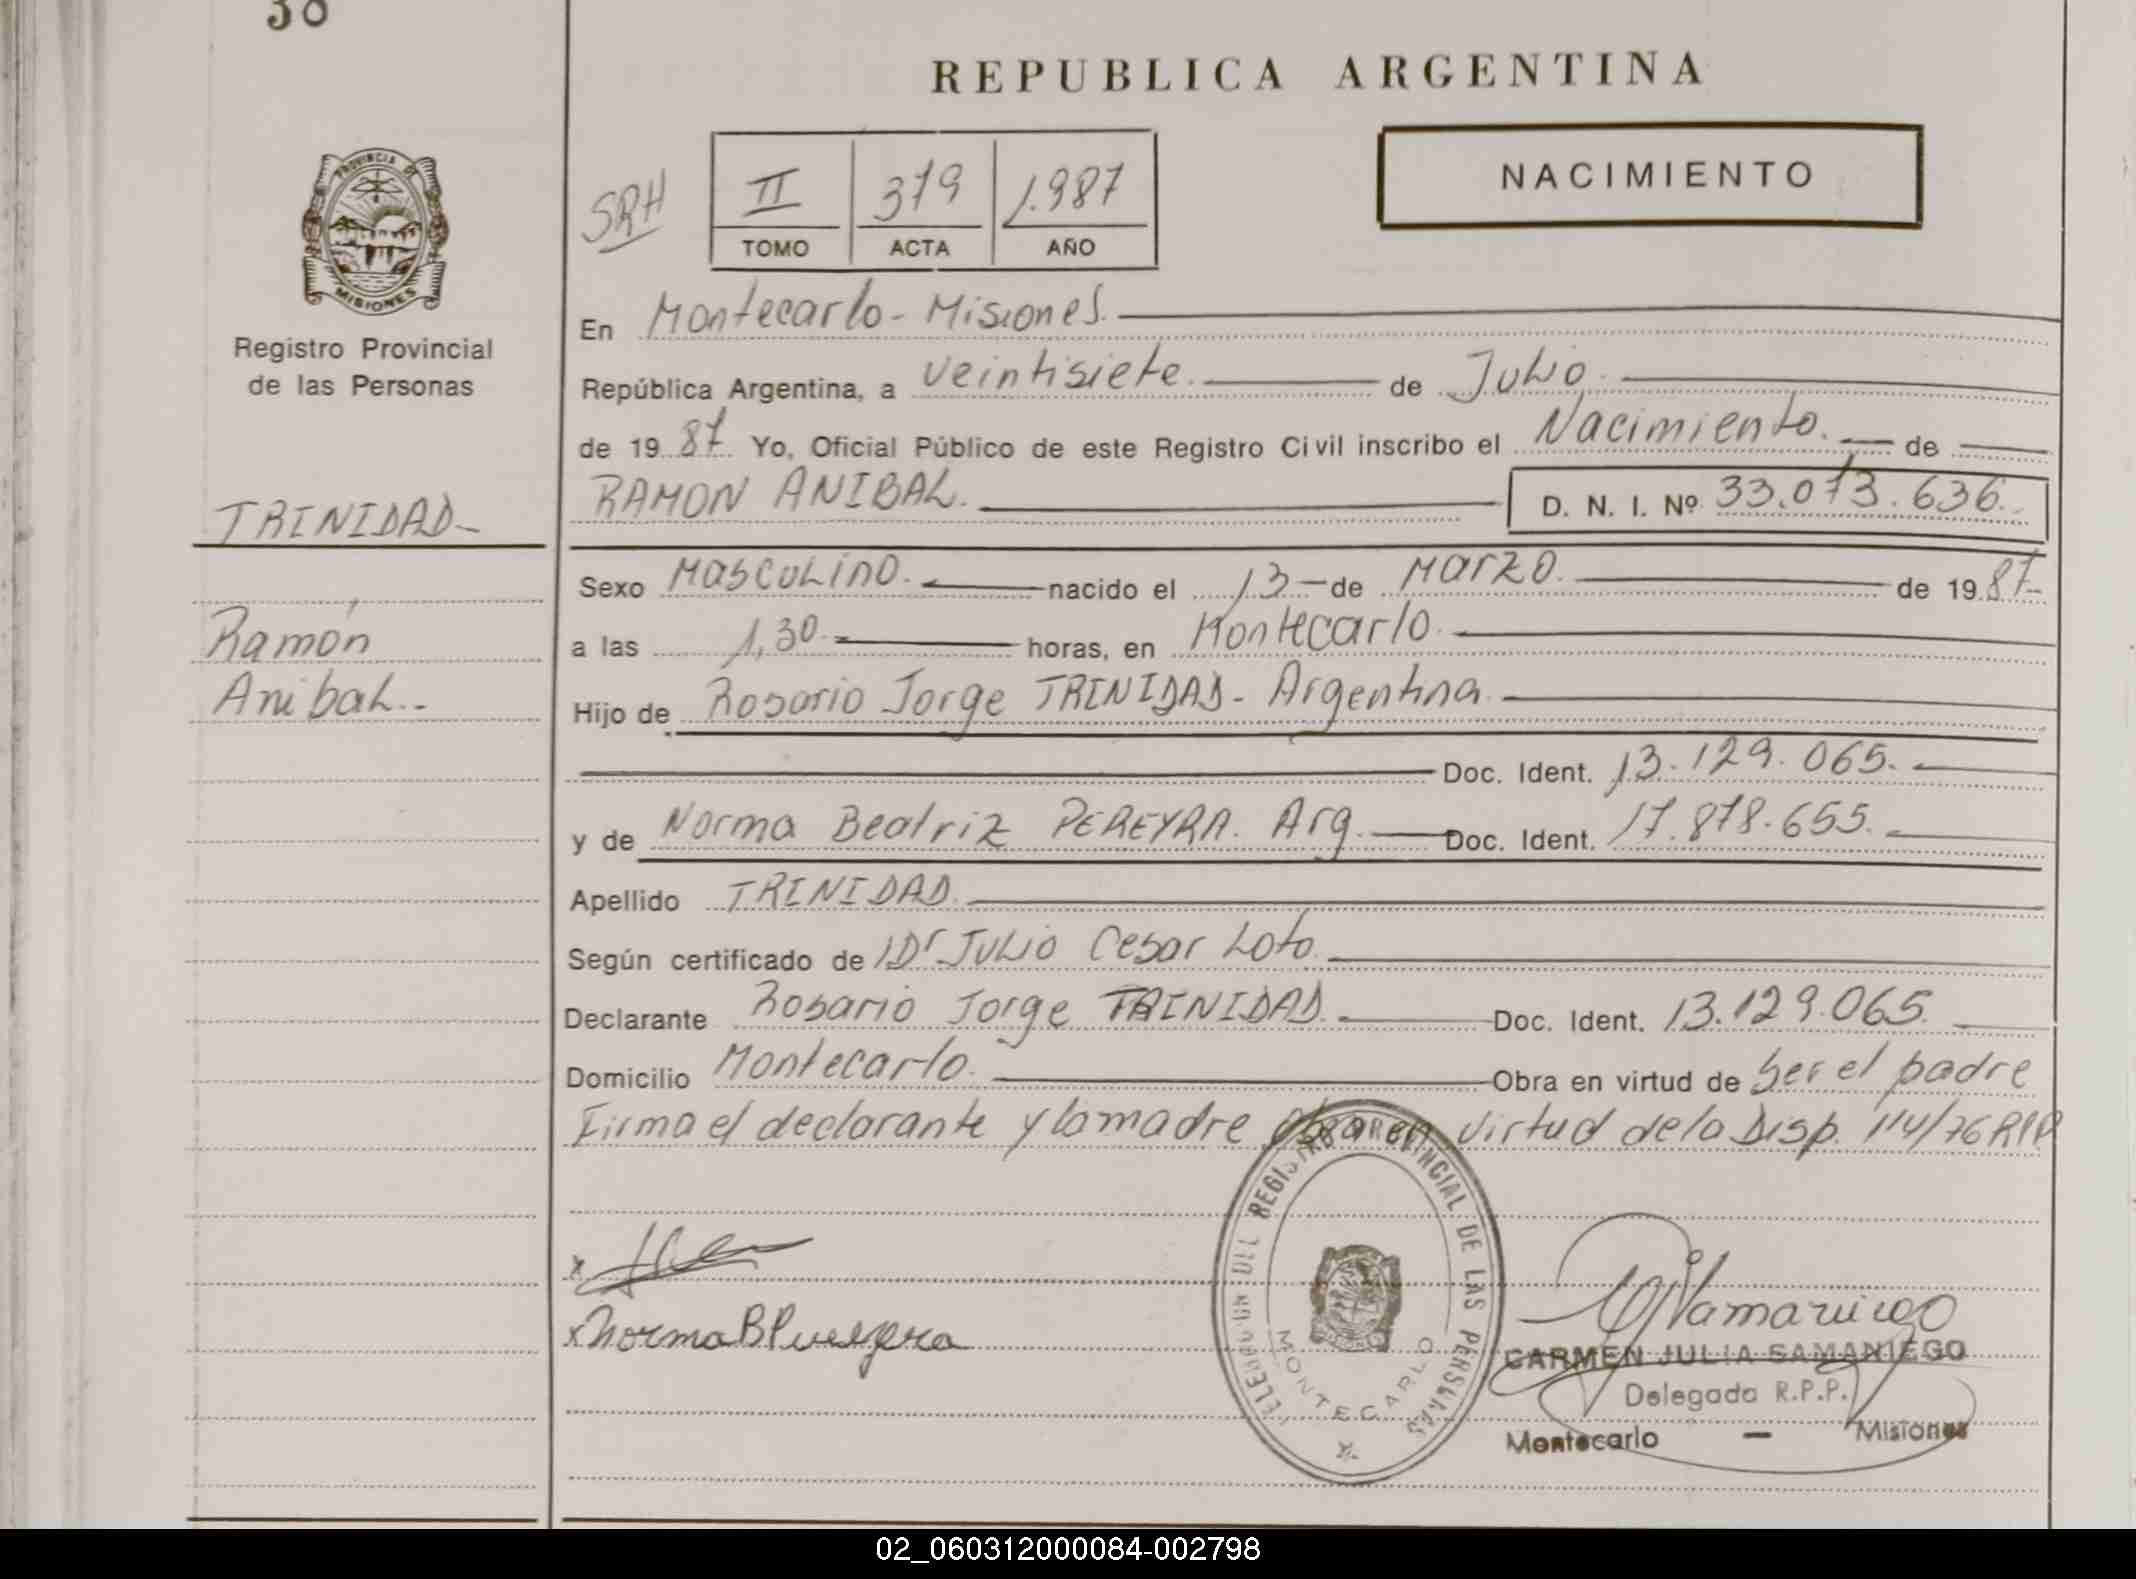 30
REPUBLICA ARGENTINA
PROVINCIA DE
MISIONES
Registro Provincial
de las Personas
SRH
II
379
1.987
TOMO
ACTA
AÑO
NACIMIENTO
En Montecarlo - Misiones.
República Argentina, a veintisiete. de Julio.
de 19 87. Yo, Oficial Público de este Registro Civil inscribo el Nacimiento. de
RAMON ANIBAL. D. N. I. Nº 33.073.636.
TRINIDAD-
Ramón
Anibal.-
Sexo Masculino. nacido el 13 - de Marzo. de 19 87-
a las 1,30.- horas, en Montecarlo.
Hijo de Rosario Jorge TRINIDAD - Argentina.
Doc. Ident. 13.129.065.
y de Norma Beatriz PEREYRA. Arg. Doc. Ident. 17.878.655.
Apellido TRINIDAD.
Según certificado de Dr Julio Cesar Loto.
Declarante Rosario Jorge TRINIDAD. Doc. Ident. 13.129.065.
Domicilio Montecarlo. Obra en virtud de Ser el padre
Firma el declarante y la madre obra en virtud de la Disp. 114/76 RPP
x
x Norma B Pereyra
DEL REGISTRO PROVINCIAL DE LAS PERSONAS
MONTECARLO
CARMEN JULIA SAMANIEGO
Delegada R.P.P.
Montecarlo - Misiones
02_060312000084-002798